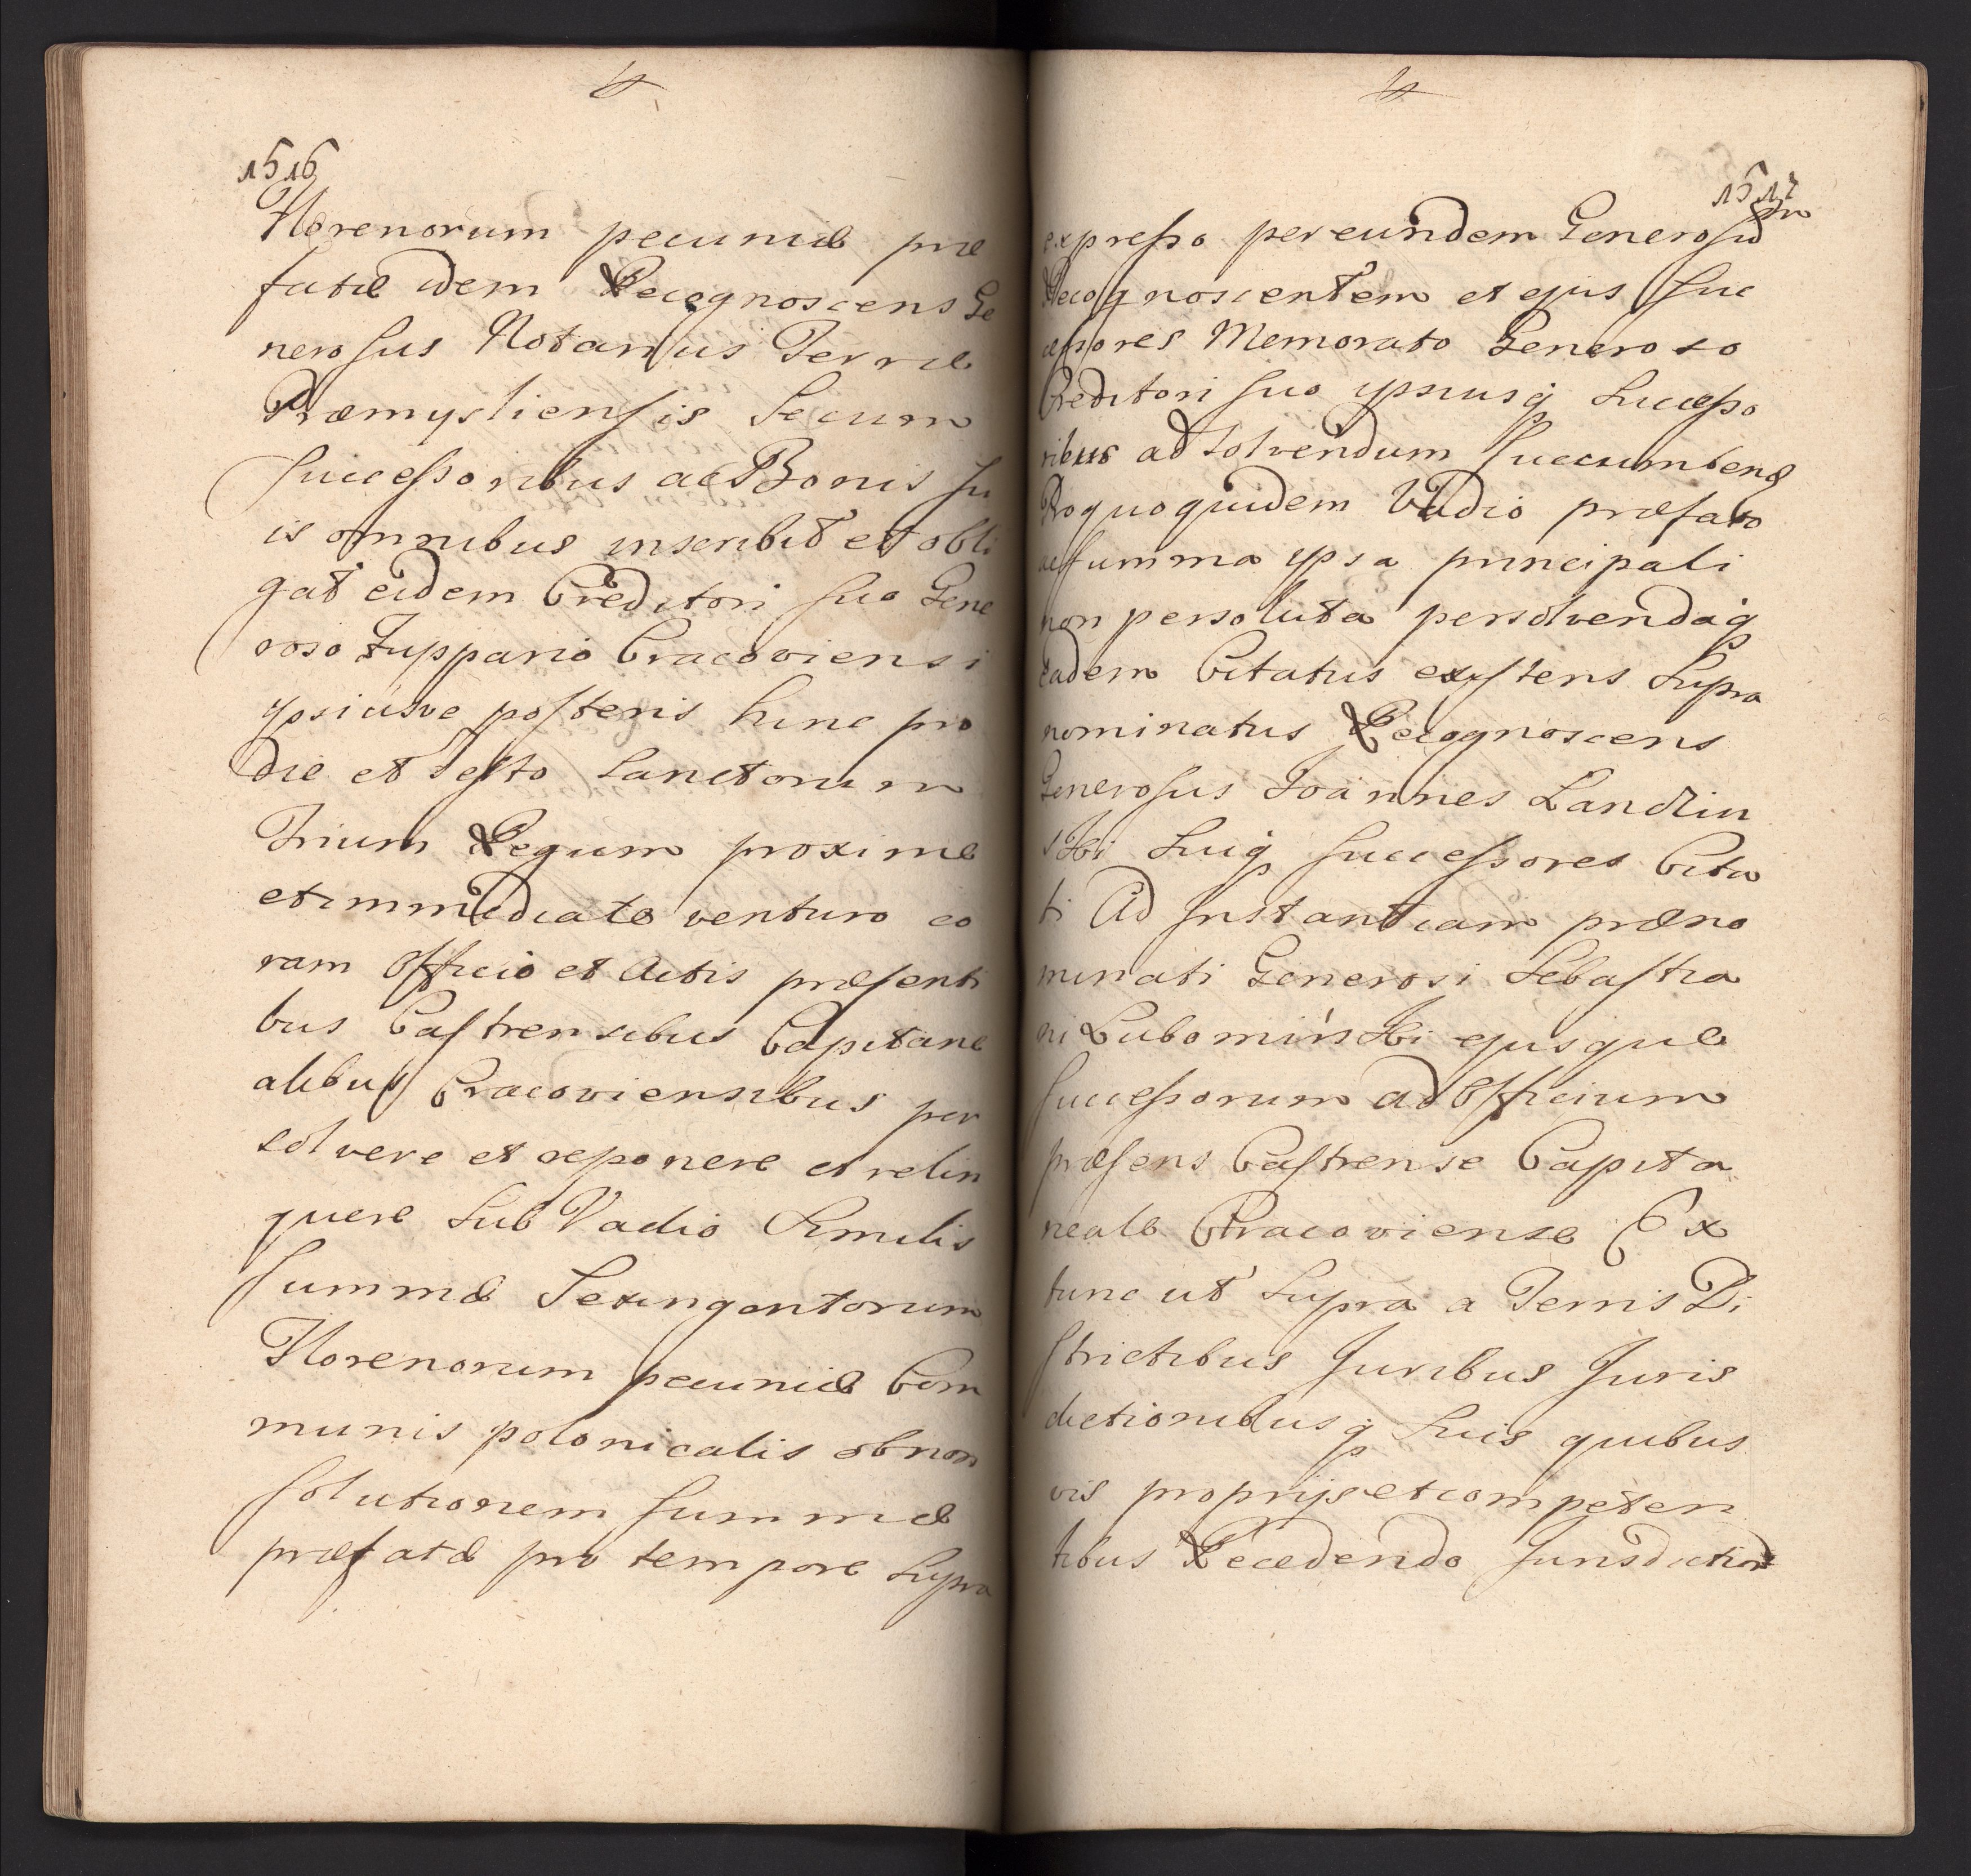 1516
Florenorum pecuniæ præ
fatæ idem Recognoscens Ge
nerosus Notarius Terræ
Præmysliensis Secum
Successoribus ac Bonis su
is omnibus inscribit et obli
gat eidem Creditori suo Gene
roso Zuppario Cracoviensi
ypsiusve posteris hinc pro
die et Festo Sanctorum
Trium Regum proxime
et immediate venturo co
ram Officio et Actis præsenti
bus Castrensibus Capitane
alibus Cracoviensibus per
solvere et reponere et relin
quere Sub Vadio Similis
summæ Sexingentorum
Florenorum pecuniæ Com
munis polonicalis ob non
solutionem summæ
præfatæ pro tempore Supra
1517
expresso per eundem Generosum
Recognoscentem et ejus Suc
cessores Memorato Generoso
Creditori suo ypsiusq Successo
ribus ad Solvendum Succumbend
Pro quo quidem Vadio præfato
ac summa ypsa principali
non persoluta persolvendaq
eadem Citatus existens Supra
nominatus Recognoscens
Generosus Joannes Landzin
ski Suiq successores Cita
ti Ad Instantiam præno
minati Generosi Sebastia
ni Lubomirski ejusque
Successorum ad Officium
præsens Castrense Capita
neale Cracoviense Ex
tunc ut Supra a Terris Di
strictibus Juribus Juris
dictionibusq Suis quibus
vis proprijs et competen
tibus Recedendo Jurisdiction